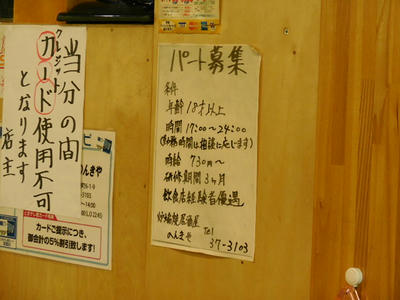 当分の間
クレジット
カード使用不可
となります
店主
んきや
カードご提示につき、
御会計の5%割引致します!
パート募集
条件
年齢 18才以上
時間 17:00～24:00
(勤務時間は相談に応じます)
時給 730円～
研修期間 3ヶ月
飲食店経験者優遇
炉端焼居酒屋
のんきや Tel
37-3103